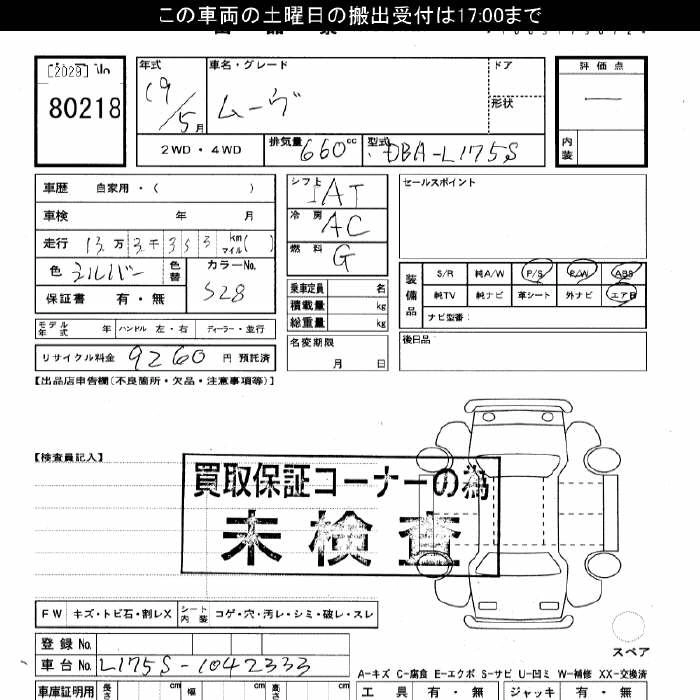 この車両の土曜日の搬出受付は17:00まで
[2029]
80218
年式
19/5月
車名・グレード
ムーヴ
ドア
形状
評価点
―
内装
2WD・4WD
排気量 660cc
型式 DBA-L175S
車歴 自家用・( )
車検 年 月
走行 13万3千353km マイル( )
色 シルバー 色替
カラーNo. S28
保証書 有・無
シフト IAT
冷房 AC
燃料 G
乗車定員 名
積載量 kg
総重量 kg
名変期限 月 日
セールスポイント
装備品
S/R 純A/W P/S P/W ABS
純TV 純ナビ 革シート 外ナビ エアB
ナビ型番:
後日品
モデル年式 年 ハンドル 左・右 ディーラー・並行
リサイクル料金 9260円 預託済
【出品店申告欄(不良箇所・欠品・注意事項等)】
【検査員記入】
買取保証コーナーの為
未検査
FW キズ・トビ石・割レX シート内装 コゲ・穴・汚レ・シミ・破レ・スレ
スペア
登録No.
車台No. L175S-1042333
A-キズ C-腐食 E-エクボ S-サビ U-凹ミ W-補修 XX-交換済
車庫証明用 長さ cm 幅 cm 高さ cm
工具 有・無 ジャッキ 有・無